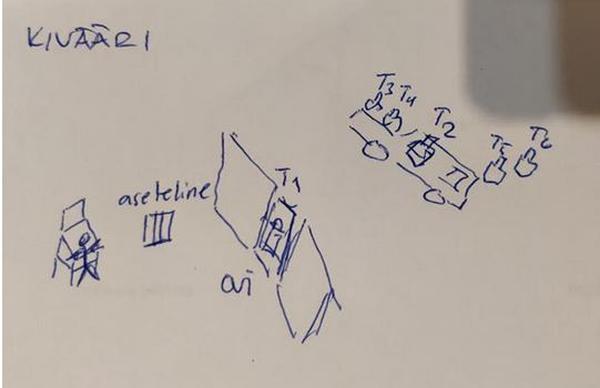 KIVÄÄRI
T3 T4
T2
T5 T6
T1
aseteline
ovi